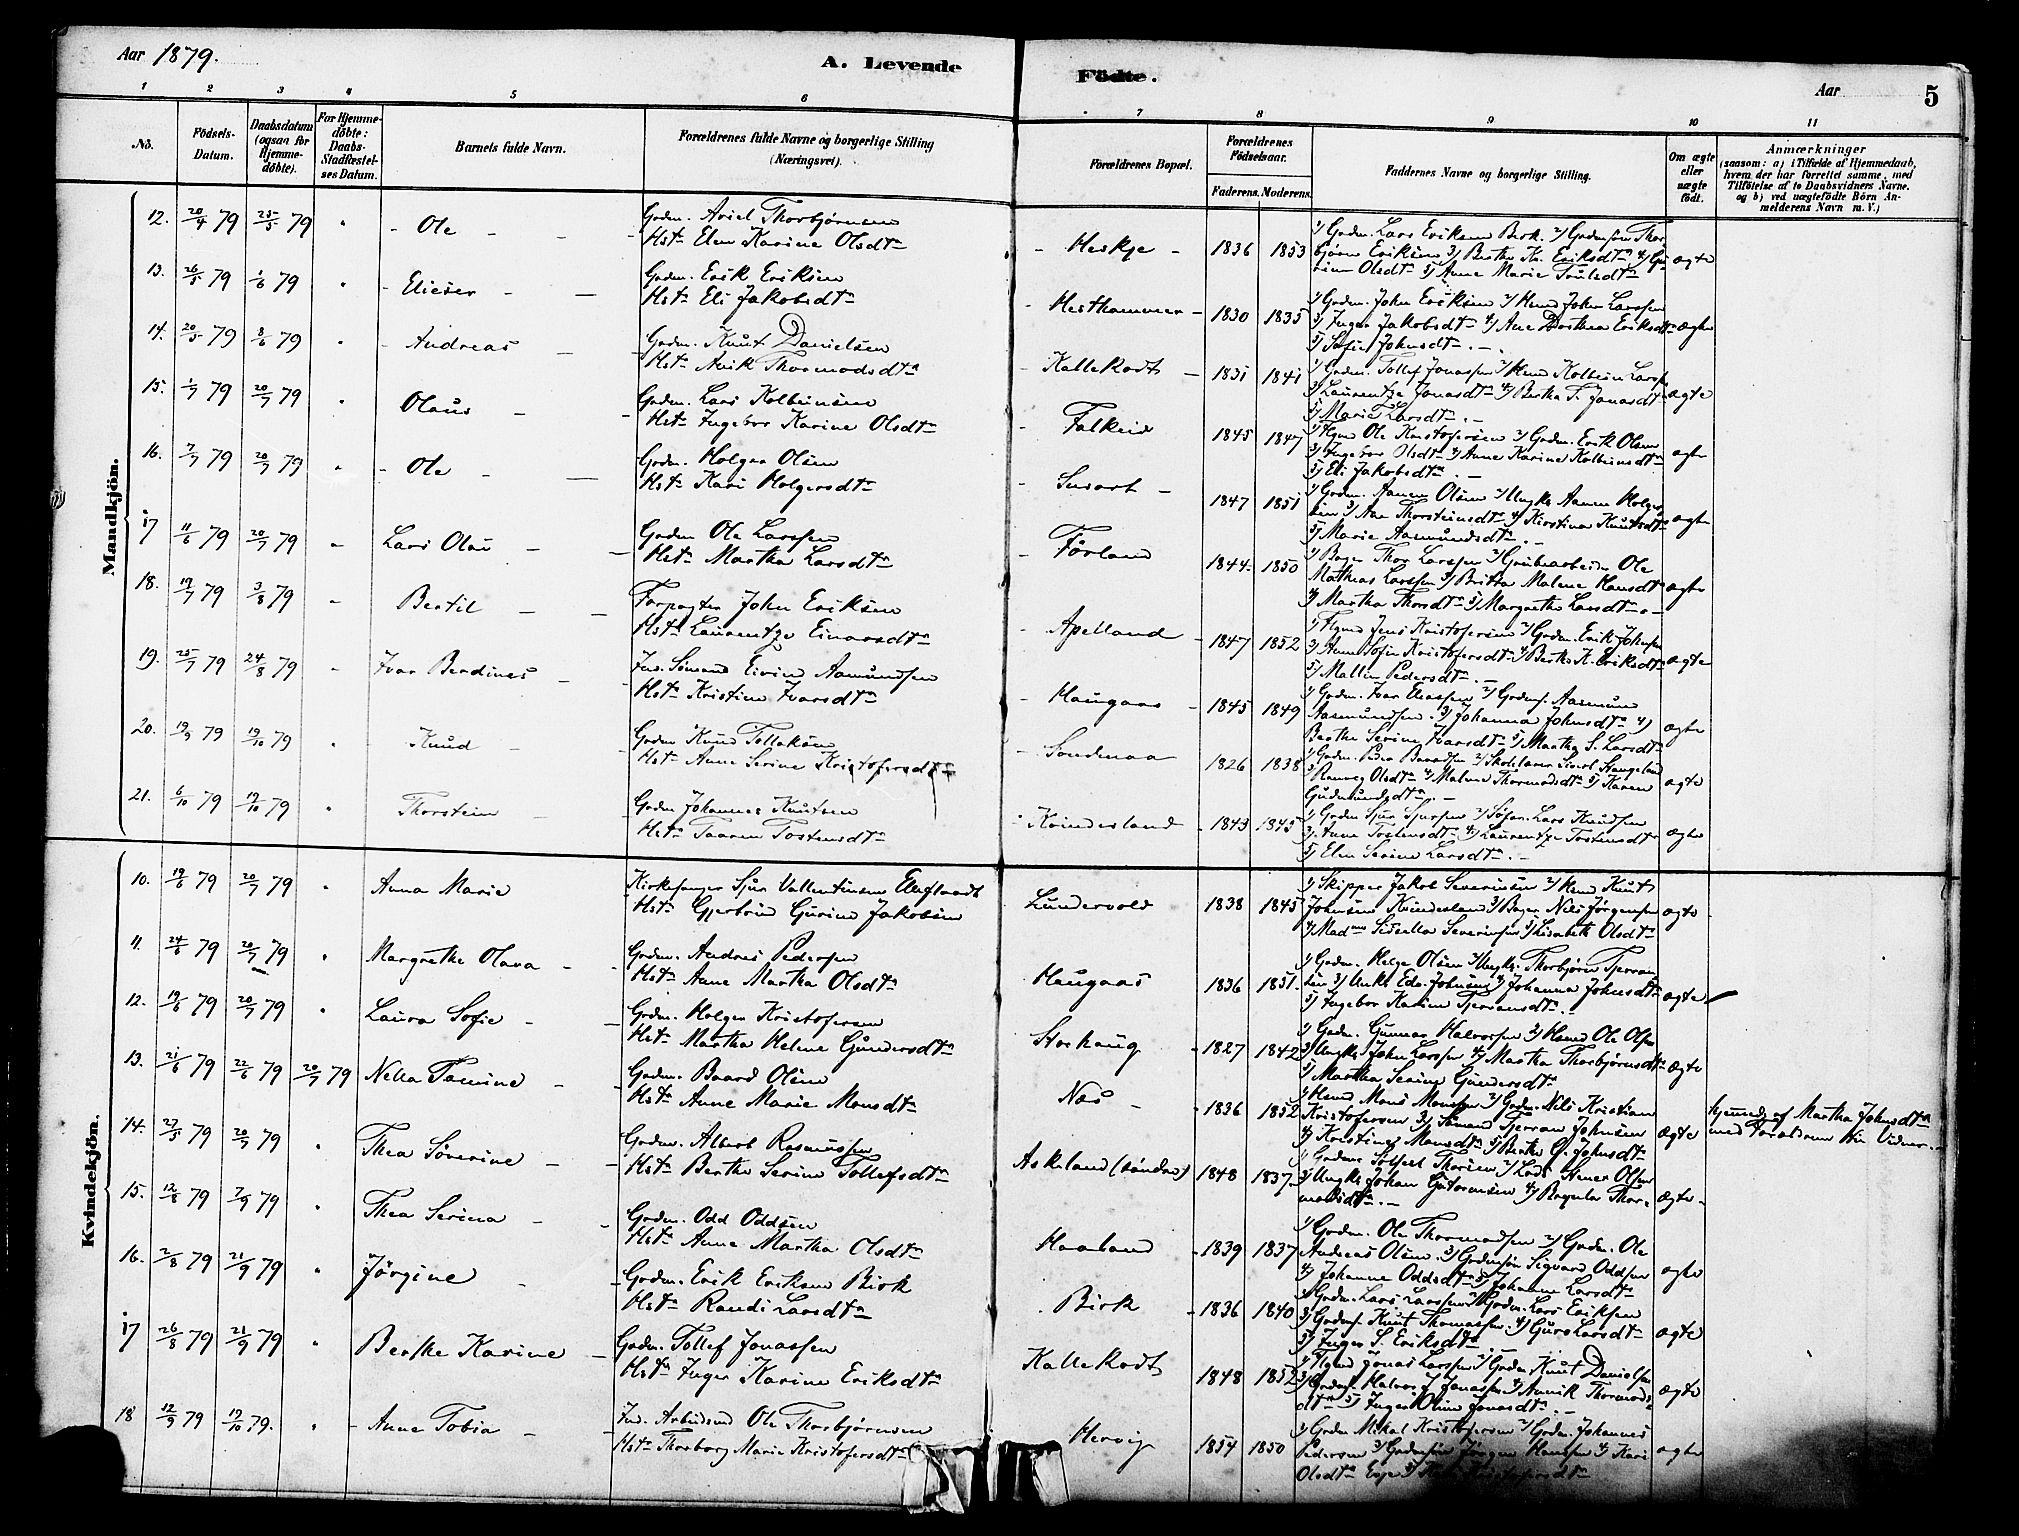 Aar 1879.
A. Levende
Födte.
Aar
5
1 2 3 4 5 6 7 8 9 10 11
No.
Födsels-
Datum.
Daabsdatum
(ogsaa for
Hjemme-
døbte).
For Hjemme-
döbte:
Daabs-
Stadfæstel-
ses Datum.
Barnets fulde Navn.
Forældrenes fulde Navne og borgerlige Stilling
(Næringsvei).
Forældrenes Bopæl.
Forældrenes
Födselsaar.
Faderens. Moderens.
Faddernes Navne og borgerlige Stilling.
Om ægte
eller
uægte
født.
Anmærkninger
(saasom: a) i Tilfælde af Hjemmedaab,
hvem der har forrettet samme, med
Tilföielse af to Daabsvidners Navne.
og b) ved uægtefödte Börn An-
melderens Navn m. V.)
Mandkjön.
12. 20/4 79 25/5 79 " Ole
Grdm. Thorbjørnsen
Hst. Elen Karine Olsdtr
Heskje 1836 1853
1) Grdm. Lars Eriksen Birk. 2) Grdmsøn Thor
bjørn Eriksen 3) Berthe Kr. Eriksdtr 4) Gu
Olsdtr 5) Anne Marie ægte
13. 26/5 79 1/6 79 " Elieser
Grdm. Erik Eriksen
Hst. Eli Jakobsdtr
Hesthammer 1830 1835
1) Grdm. John Eriksen 2) John Larssen
3) Inger Jakobsdtr 4) Ane Dorthea Eriksdtr ægte
5) Sofie Johnsdtr.
14. 20/5 79 8/6 79 " Andreas
Grdm. Knut Danielsen
Hst. Thormodsdtr
Kallekodt 1831 1841
1) Grdm. Tollef Jonassen 2) Kolbein Larssen
3) Laurentze Jonasdtr 4) Bertha T. Jonasdtr ægte
5) Marie Larsdtr.
15. 1/7 79 20/7 79 " Olaus
Grdm. Lars Kolbeinsen
Hst. Ingebor Karine Olsdtr
Falkeid 1845 1847
1) Ole Kristofersen 2) Grdm. Erik Olsen
3) Ingebor Olsdtr 4) Anne Karine Kolbeinsdtr ægte
5) Eli Jakobsdtr.
16. 7/7 79 20/7 79 " Ole
Grdm. Holger Olsen
Hst. Kari Holgersdtr
1847 1851
1) Grdm. Aamen Olsen 2) Ungk. Aamen Holger
sen 3) Ane Thorsteinsdtr 4) Kirstine Knutsdtr ægte
5) Marie Aasmundsdtr.
17 11/6 79 20/7 79 " Lars Olai
Grdm Ole Larssen
Hst. Martha Larsdtr
Førland 1844 1850
1) Thor Larssen 2) Grubearbeider Ole
Mathias Larssen 3) Britta Malene Hansdtr ægte
4) Martha Thorsdtr 5) Margrethe Larsdtr
18. 19/7 79 3/8 79 " Bertil
Forpagter John Eriksen
Hst. Laurentze Einarsdtr
Apelland 1847 1852
1) Jens Kristofersen 2) Grdm. Erik Johnsen
3) Anne Sofie Kristofersdtr 4) Berthe K. Eriksdtr ægte
5) Mallin Pedersdtr.
19. 25/7 79 24/8 79 " Ivar Berdines
Ind. Sømand Eivind Aamundsen
Hst. Kristine Ivarsdtr
Haugaas 1845 1849
1) Grdm. Ivar Eliassen 2) Grdm. Aasmund
Aasmundsen. 3) Johanna Johnsdtr 4)
Berthe Serine Ivarsdtr 5) Martha S. Larsdtr ægte
20. 19/9 79 19/10 79 " Knud
Grdm Knud Tollaksen
Hst. Anne Serine Kristofersdtr
Søndenaa 1826 1838
1) Grdm. Peder Baardsen 2) Skolelærer Sivert Stangeland
3) Ranveg Olsdtr 4) Malene Thormodsdtr 5) Karen
Gudmundsdtr. ægte
21. 6/10 79 19/10 79 " Thorstein
Grdm Johannes Knutsen
Hst. Taaren Tostensdtr
Kvindesland 1843 1845
1) Grdm Sjur Sjursen 2) Lars Knudsen
3) Anne Tostensdtr 4) Laurentze Tostensdtr ægte
5) Elen Serine Larsdtr.
Kvindekjön.
10. 19/6 79 20/7 79 " Anna Marie
Kirkesanger Sjur Vallentinsen
Hst. Gjertrud Gurine Jakobsen
Lundervold 1838 1845
1) Skipper Jakob Severinsen 2) Knut
Johnsen Kvindesland 3) Nils Jørgensen ægte
4) Mad. Severinsen 5) Lisabeth Olsdtr
11. 24/6 79 20/7 79 " Margrethe Olava
Grdm. Andreas Pedersen
Hst. Anne Martha Olsdtr
Haugaas 1836 1851
1) Grdm. Helge Olsen 2) Ungk. Thorbjørn Tjerran
sen 3) Johnsen 4) Johanna Johnsdtr ægte
5) Ingebor Karine Tjerransdtr.
12. 19/6 79 20/7 79 " Laura Sofie
Grdm. Holger Kristofersen
Hst. Martha Helene Gundersdtr
Storhaug 1827 1842
1) Grdm. Gunnar Halvorsen 2) Ole Olsen
3) Ungk. John Larssen 4) Martha Thorbjørnsdtr ægte
5) Martha Serine Gundersdtr
13. 21/6 79 22/6 79 20/7 79 Nella Tamine
Grdm. Baard Olsen
Hst. Anne Marie Monsdtr
Næs 1836 1852
1) Mons Monsen 2) Grdm. Nils Kristian
Kristofersen 3) Sømand Tjerran Johnsen
4) Kristine Monsdtr 5) Berthe G. Johnsdtr ægte
hjemmd. af Martha Johnsdtr
med Forældrene til Vidner.
14. 27/5 79 20/7 79 " Thea Søverine
Grdm. Albert Rasmussen
Hst. Berthe Serine Tollefsdtr
Askeland (søndre) 1848 1837
Thorsen 2) Lods Stener Olsen
3) Ungk. Johan Gutormsen 4) Thor-
modsdtr. ægte
15. 12/8 79 7/9 79 " Thea Serina
Grdm. Odd Oddsen
Hst. Anne Martha Olsdtr
Haaland 1839 1837
1) Grdm. Ole Thormodsen 2) Grdm. Ole
Andreas Olsen. 3) Grdmsøn Sigvard Oddsen
4) Johanne Oddsdtr 5) Johanne Larsdtr ægte
16. 2/8 79 21/9 79 " Jørgine
Grdm. Erik Eriksen Birk
Hst. Randi Larsdtr
Birk 1836 1840
1) Grdm. Lars Larssen 2) Grdm. Lars Eriksen
3) Knut Thomassen. 4) Guro Larsdtr
5) Inger S. Eriksdtr ægte
17 26/8 79 21/9 79 " Berthe Karine
Grdm. Tollef Jonassen
Hst. Inger Karine Eriksdtr
Kallekodt 1848 1852
1) Jonas Larssen 2) Grdm. Knut Danielsen
3) Halvor J. Jonassen 4) Annik Thormods-
dtr 5) Inger Oline Jonasdtr. ægte
18 12/9 79 19/10 79. " Anne Tobia
Ind. Arbeidsmd Ole Thorbjørnsen
Hst. Thorborg Marie Kristofersdtr
Hervig 1854 1850
1) Grdm Mikal Kristofersen 2) Grdm. Johannes
Pedersen 3) Grdmsøn Jørgen Hansen 4) Kari
Olsdtr 5) Kristofersdtr ægte